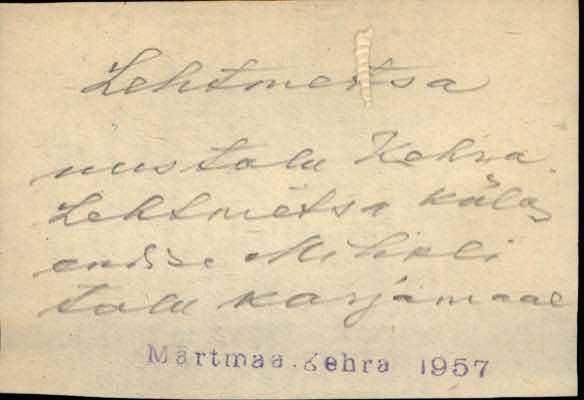 Lehtmetsa
uus talu Kehra
Lehtmetsa külas
endise Mihkli
talu karjamaal
Märtmaa.Kehra 1957